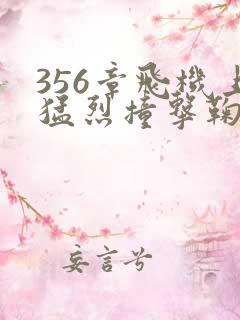 356章飛機上
猛烈撞擊鞠
妄言兮